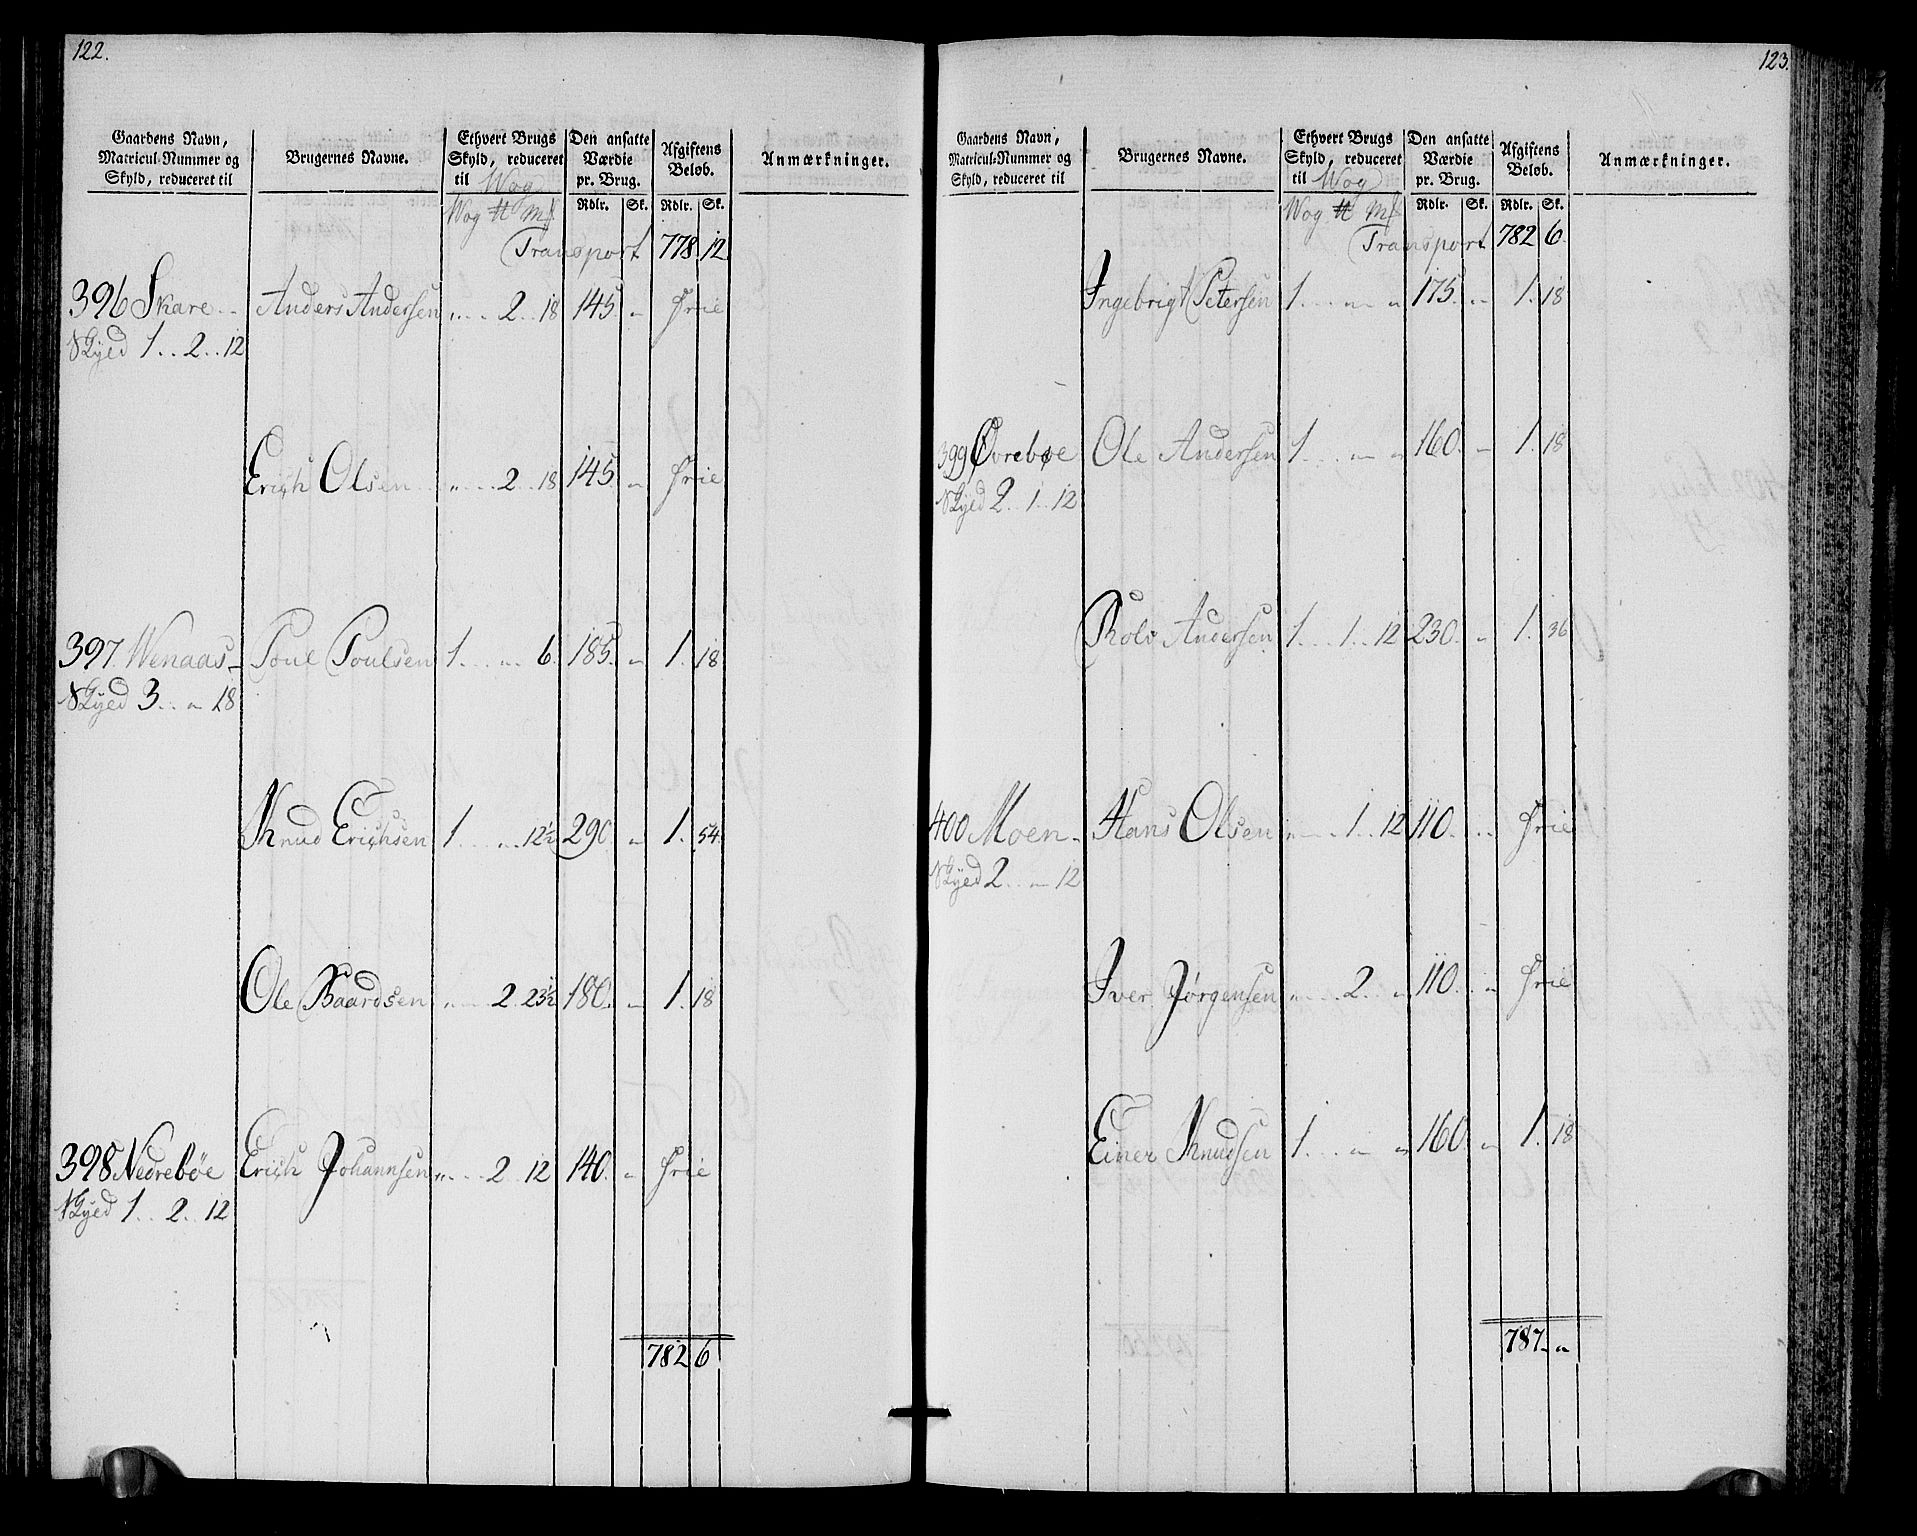 122.
Gaardens Navn, Matricul-Nummer og Skyld, reduceret til
Brugernes Navne.
Ethvert Brugs Skyld, reduceret til Wog
Den ansatte Værdie pr. Brug.
Afgiftens Beløb.
Anmærkninger.
Wog ℔ Mſ Rdlr. Sk. Rdlr. Sk.
Transport 778 12
396 Skare Anders Andersen „ 2 18 145. „ Frie
Skyld 1 .. 2 .. 12
Erich Olsen „ 2 18 145. „ Frie
397. Wenaas Poul Poulsen 1 „ 6. 185. „ 1. 18
Skyld 3 .. „ 18
Knud Erichsen 1 „ 12½ 290. „ 1. 54.
Ole Baardsen „ 2 23½ 180. „ 1. 18
398 Nedrebøe Erich Johannsen „ 2 12 140. „ Frie
Skyld 1 .. 2 .. 12
782 6
123.
Gaardens Navn, Matricul-Nummer og Skyld, reduceret til
Brugernes Navne.
Ethvert Brugs Skyld, reduceret til Wog
Den ansatte Værdie pr. Brug.
Afgiftens Beløb.
Anmærkninger.
Wog ℔ Mſ Rdlr. Sk. Rdlr. Sk.
Transport 782 6.
Ingebrigt Petersen 1 „ „ 175. „ 1. 18
399 Øvrebøe Ole Andersen 1 „ „ 160. „ 1. 18
Skyld 2 .. 1 .. 12
Rolv Andersen 1 .. 1 .. 12 230. „ 1. 36
400 Moen Hans Olsen „ 1 .. 12 110. „ Frie
Skyld 2 .. „ 12
Iver Jørgensen „ 2 .. „ 110. „ Frie
Einer Knudsen 1 „ „ 160. „ 1. 18
787. „